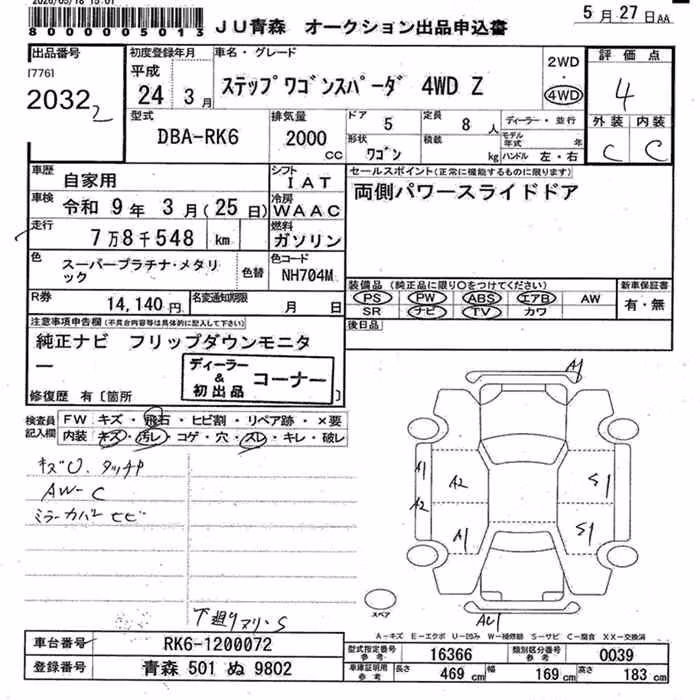 2026/05/18 15:01
8000005013
JU青森 オークション出品申込書
5月27日AA
出品番号
[776]
2032 2
初度登録年月
平成
24 3月
車名・グレード
ステップワゴンスパーダ 4WD Z
2WD
・
4WD
評価点
4
外装 内装
C C
型式
DBA-RK6
排気量
2000
cc
ドア
5
定員
8人
形状
ワゴン
積載
kg
ディーラー・並行
モデル年式 年
ハンドル 左・右
車歴
自家用
シフト
IAT
車検
令和 9年 3月(25日)
冷房
WAAC
走行
7万8千548 km
燃料
ガソリン
色
スーパープラチナ・メタリック
色替
色コード
NH704M
R券
14,140円
名変通知期限
月 日
セールスポイント(正常に機能するものに限ります)
両側パワースライドドア
装備品(純正品に限り○をつけてください)
PS PW ABS エアB AW
SR ナビ TV カワ
新車保証書
有・無
後日品
注意事項申告欄(不具合内容等は具体的に記入して下さい)
純正ナビ フリップダウンモニター
ディーラー
&
初出品
コーナー
修復歴 有〔箇所 〕
検査員記入欄
FW キズ・飛石・ヒビ割・リペア跡・×要
内装・キズ・汚レ・コゲ・穴・スレ・キレ・破レ
キズU. タッチP
AW-C
ミラーカバーヒビ
下廻りマリーS
A1
A1
A2
A2
A1
S1
S1
スペア
A-キズ E-エクボ U-凹み W-補修跡 S-サビ C-腐食 XX-交換済
車台番号
RK6-1200072
登録番号
青森 501 ぬ 9802
型式指定番号
参考
16366
類別区分番号
参考
0039
車庫証明用
参考
長さ
469cm
幅
169cm
高さ
183cm